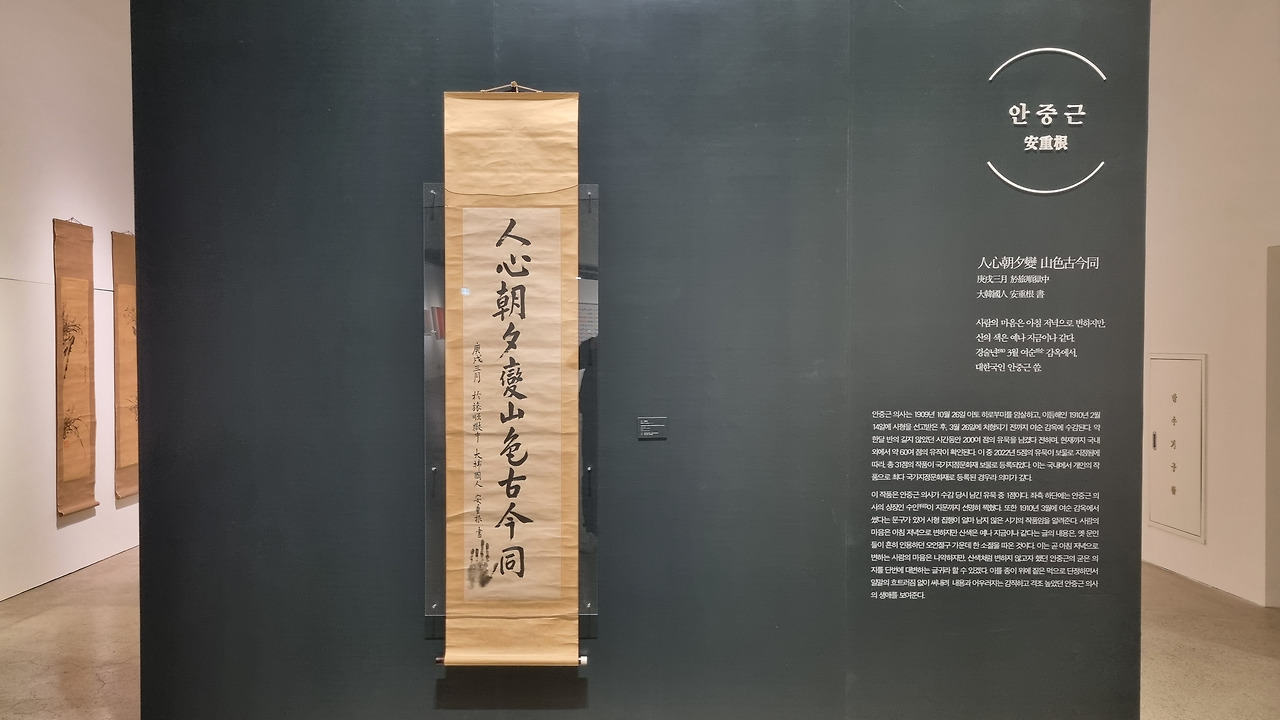 人心朝夕變山色古今同
庚戌三月 於旅順獄中 大韓國人 安重根 書
안중근
安重根
人心朝夕變 山色古今同
庚戌三月 於旅順獄中
大韓國人 安重根 書
사람의 마음은 아침 저녁으로 변하지만,
산의 색은 예나 지금이나 같다.
경술년1910 3월 여순 감옥에서,
대한국인 안중근 씀.
안중근 의사는 1909년 10월 26일 이토 히로부미를 암살하고, 이듬해인 1910년 2월
14일에 사형을 선고받은 후, 3월 26일에 처형되기 전까지 여순 감옥에 수감된다. 약
한달 반의 길지 않았던 시간동안 200여 점의 유묵을 남겼다 전하며, 현재까지 국내
외에서 약 60여 점의 유작이 확인된다. 이 중 2022년 5점의 유묵이 보물로 지정됨에
따라, 총 31점의 작품이 국가지정문화재 보물로 등록되었다. 이는 국내에서 개인의 작
품으로 최다 국가지정문화재로 등록된 경우라 의미가 깊다.
이 작품은 안중근 의사가 수감 당시 남긴 유묵 중 1점이다. 좌측 하단에는 안중근 의
사의 상징인 수인이 지문까지 선명히 찍혔다. 또한 1910년 3월에 여순 감옥에서
썼다는 문구가 있어 사형 집행이 얼마 남지 않은 시기의 작품임을 알려준다. 사람의
마음은 아침 저녁으로 변하지만 산색은 예나 지금이나 같다는 글의 내용은, 옛 문인
들이 흔히 인용하던 오언절구 가운데 한 소절을 따온 것이다. 이는 곧 아침 저녁으로
변하는 사람의 마음은 나약하지만, 산색처럼 변하지 않고자 했던 안중근의 굳은 의
지를 단번에 대변하는 글귀라 할 수 있겠다. 이를 종이 위에 짙은 먹으로 단정하면서
일말의 흐트러짐 없이 써내려 내용과 어우러지는 강직하고 격조 높았던 안중근 의사
의 생애를 보여준다.